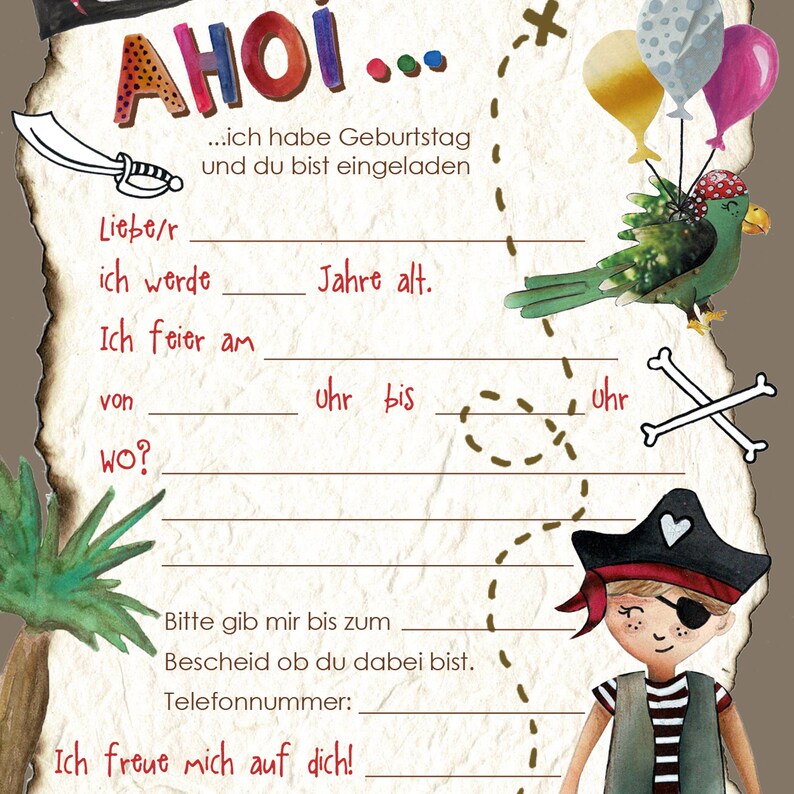 AHOi...
...ich habe Geburtstag
und du bist eingeladen
Liebe/r
ich werde Jahre alt.
Ich feier am
von Uhr bis Uhr
WO?
Bitte gib mir bis zum
Bescheid ob du dabei bist.
Telefonnummer:
Ich freue mich auf dich!